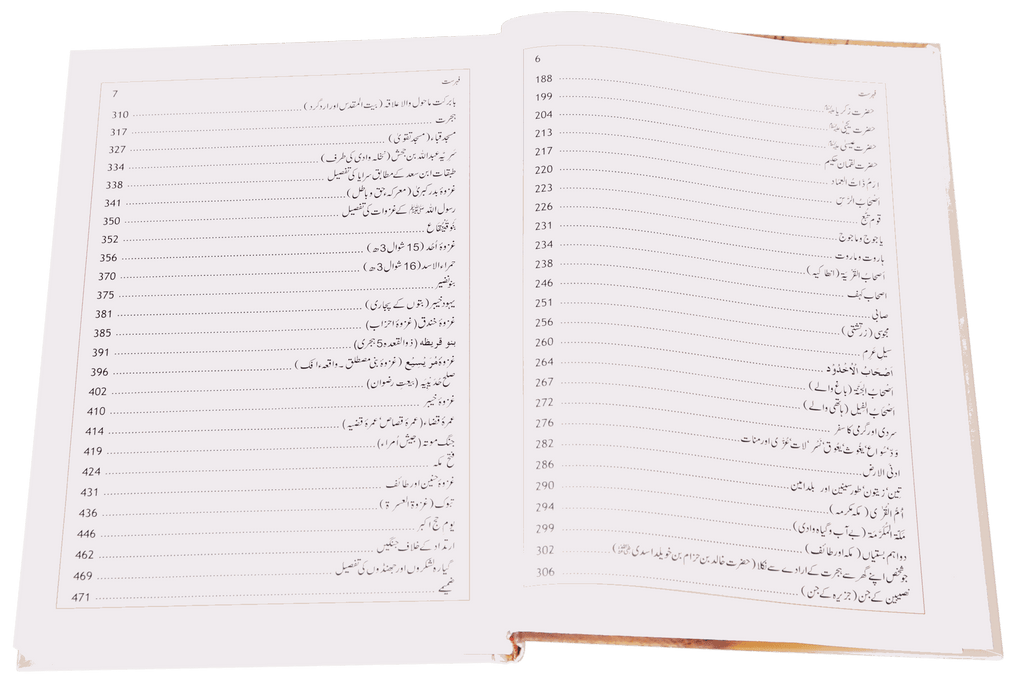 6
فہرست
حضرت زکریا ﷺ 188
حضرت یحییٰ ﷺ 199
حضرت عیسیٰ ﷺ 204
حضرت لقمان حکیم 213
ارم ذات العماد 217
اصحاب الرّس 220
قوم تبع 223
یاجوج و ماجوج 226
ہاروت و ماروت 231
اصحاب القَرْیَۃ (انطاکیہ) 234
اصحاب کہف 238
صابی 246
مجوسی (زرتشتی) 251
سیل عرم 256
اَصْحَابُ الْاُخْدُوْد 260
اَصْحَابُ الْجَنَّۃ (باغ والے) 264
اَصْحَابُ الْفِیل (ہاتھی والے) 267
سردی اور گرمی کا سفر 272
وَدّ‘ سُوَاع‘ یَغُوث‘ یَعُوق‘ نَسْر‘ لات‘ عُزّٰی اور منات 276
ادنیٰ الارض 282
تین‘ زیتون‘ طور سینین اور بلد امین 286
اُمّ الْقُرٰی (مکہ مکرمہ) 290
مکّۃ المُکَرَّمۃ (بے آب و گیاہ وادی) 294
دو اہم بستیاں (مکہ اور طائف) 299
جو شخص اپنے گھر سے ہجرت کے ارادے سے نکلا (حضرت خالد بن حزام بن خویلد اسدی ﷺ) 302
نصیبین کے جن (جزیرہ کے جن) 306
7
فہرست
بابرکت ماحول والا علاقہ (بیت المقدس اور اردگرد) 310
ہجرت 317
مسجد قباء (مسجد تقویٰ) 327
سریّہ عبداللہ بن جحش (نخلہ وادی کی طرف) 334
طبقات ابن سعد کے مطابق سرایا کی تفصیل 338
غزوۂ بدر کبریٰ (معرکہ حق و باطل) 341
رسول اللہ ﷺ کے غزوات کی تفصیل 350
بنوقَیْنُقَاع 352
غزوۂ اُحُد (15 شوال 3ھ) 356
حمراء الاسد (16 شوال 3ھ) 370
بنونضیر 375
یہود خیبر (بتوں کے پجاری) 381
غزوۂ خندق (غزوۂ احزاب) 385
بنو قریظہ (ذوالقعدہ 5 ہجری) 391
غزوۂ مُرَیْسِیْع (غزوۂ بنی مصطلق ۔ واقعہ افک) 396
صلح حُدَیْبِیَہ (بیعت رضوان) 402
غزوۂ خیبر 410
عمرۂ قضاء (عمرۂ قصاص‘ عمرۂ قضیہ) 414
جنگ موتہ (جیش اُمراء) 419
فتح مکہ 424
غزوۂ حنین اور طائف 431
تبوک (غزوۃ العسرۃ) 436
یوم حج اکبر 446
ارتداد کے خلاف جنگیں 462
گیارہ لشکروں اور جھنڈوں کی تفصیل 469
ضمیمے 471